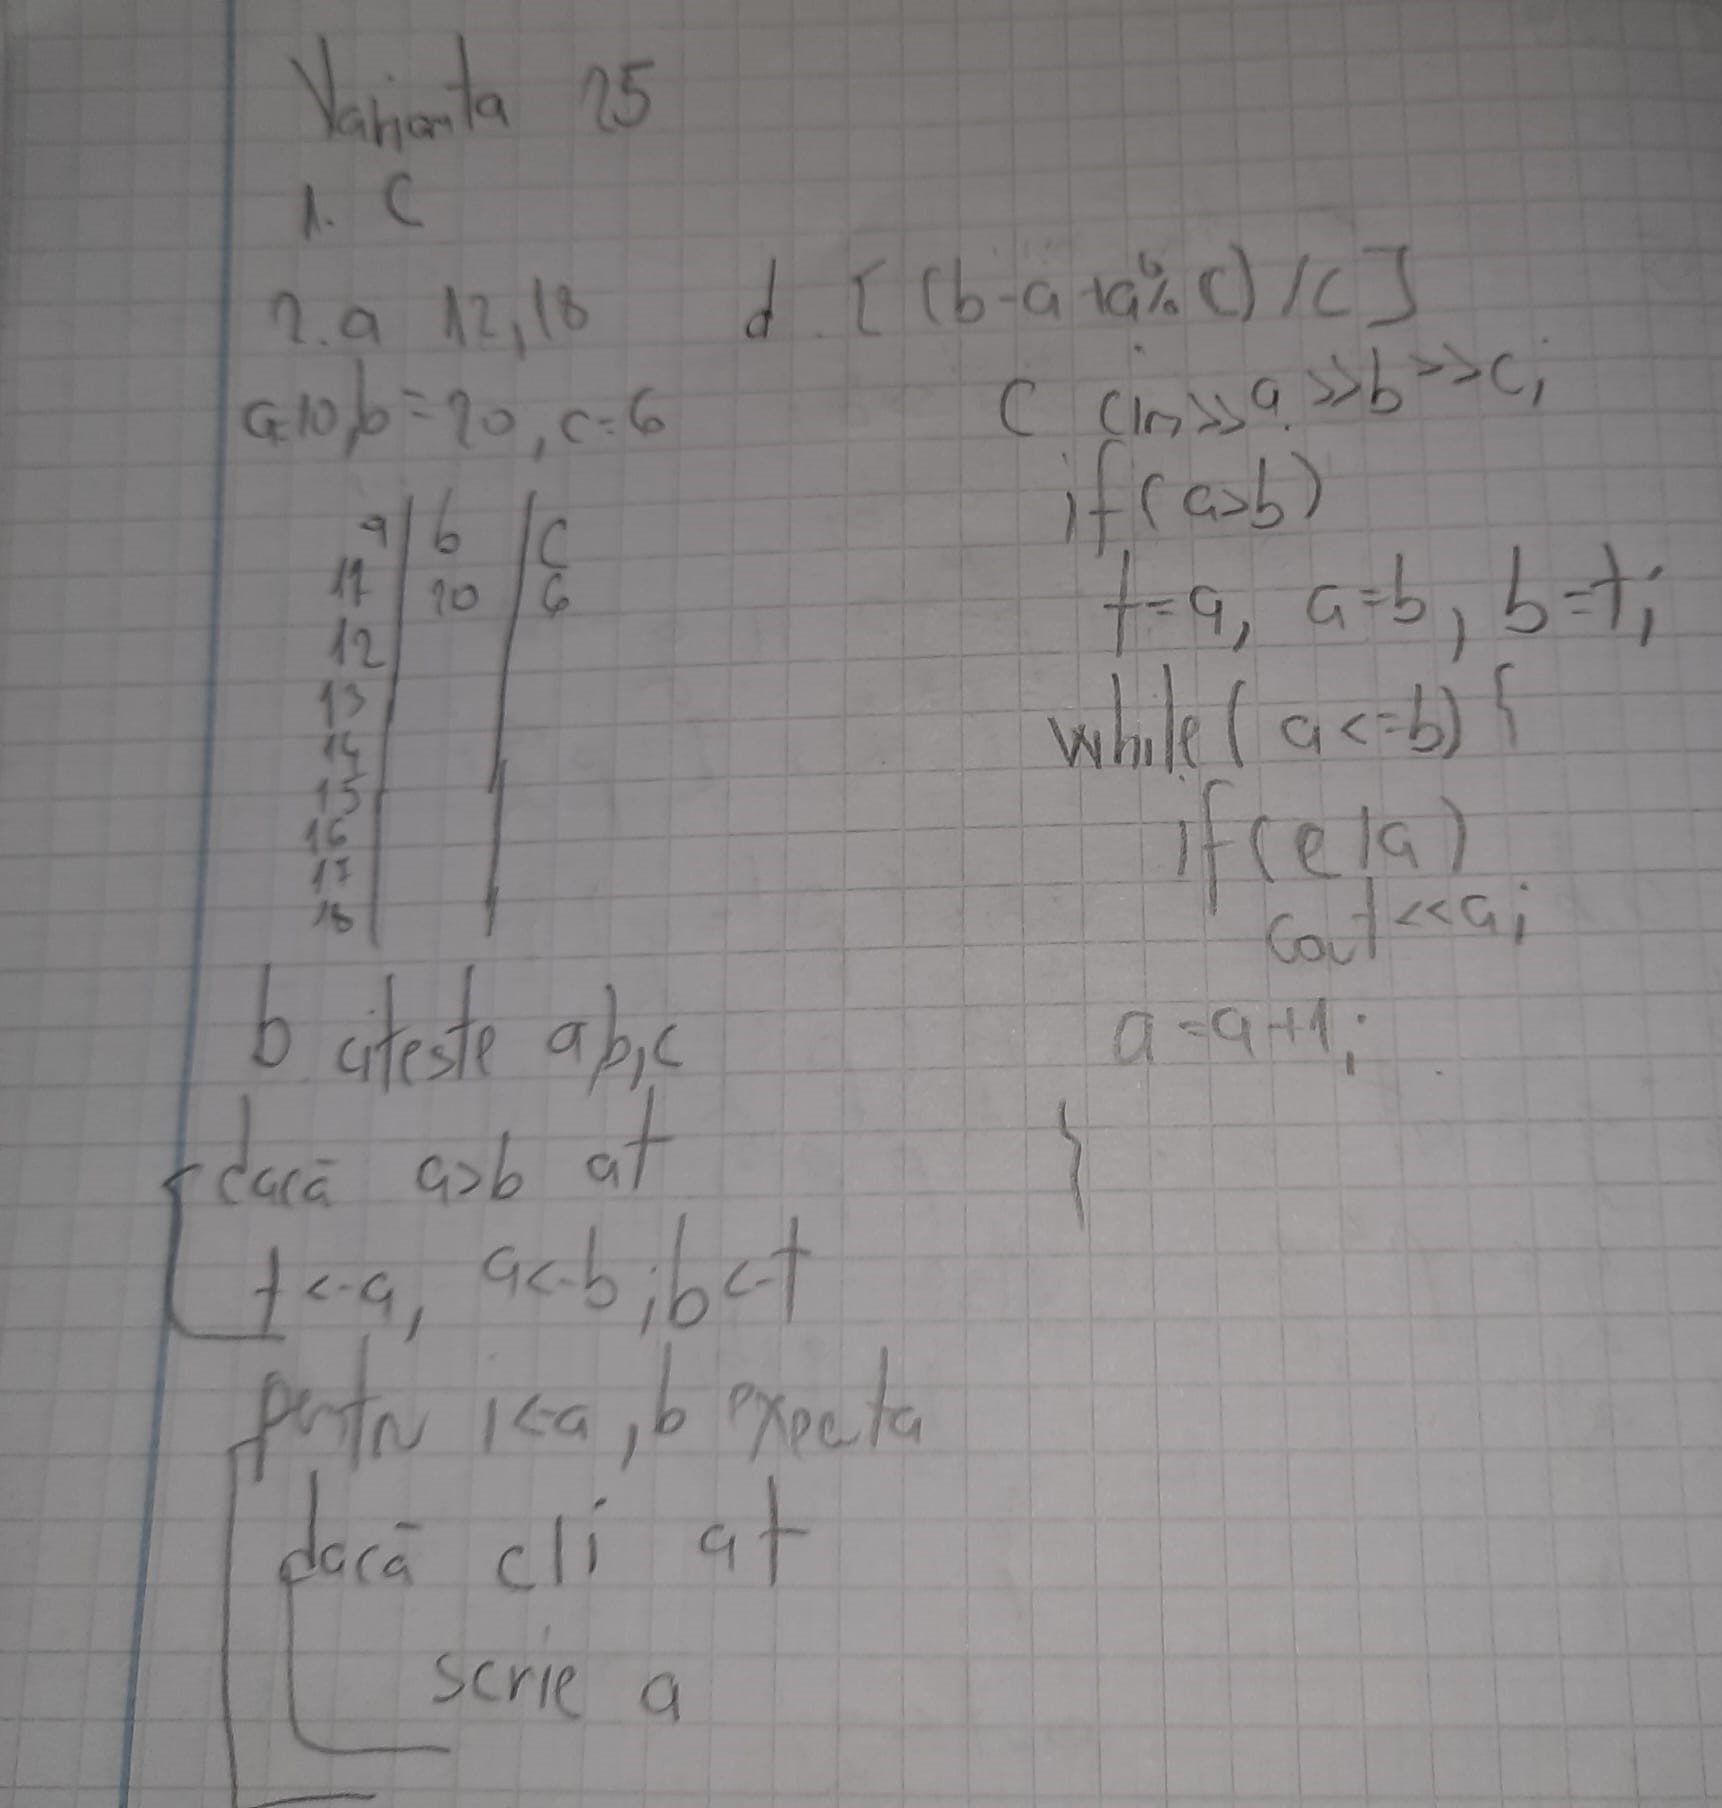 Varianta 25
1. C
2. a 12,18
a=10, b=20, c=6
a | b | c
11 | 20 | 6
12
13
14
15
16
17
18
b citeste a b, c
dacă a>b at
t<-a, a<-b; b<-t
pentru i<-a, b executa
dacă c|i at
scrie a
d. [(b-a+a%c)/c]
c cin>>a>>b>>c;
if(a>b)
t=a, a=b, b=t;
while(a<=b){
if(e|a)
cout<<a;
a=a+1;
}